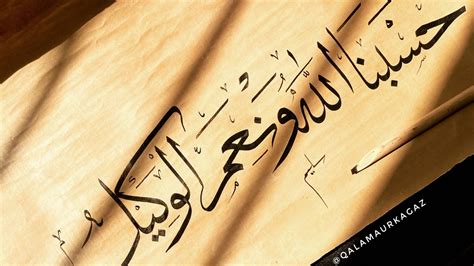 حسبنا الله ونعم الوكيل
@QALAMAURKAGAZ